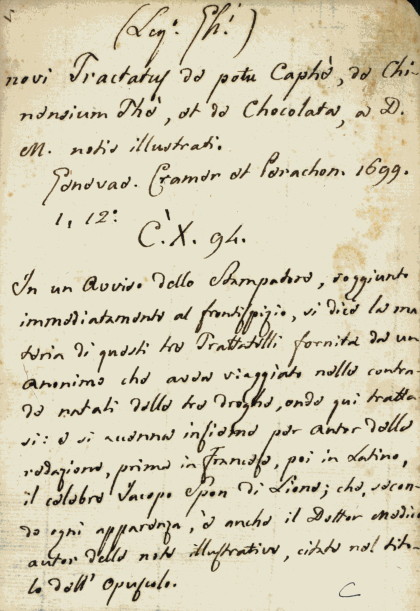 (Leg.° Gh.¹)
novi Tractatus de potu Caphè, de Chi-
nensium Thè, et de Chocolata, a D.
M. notis illustrati.
Genevae. Cramer et Perachon. 1699.
1, 12.°
C. X. 94.
In un Avviso dello Stampatore, soggiunto
immediatamente al frontispizio, si dice la ma
teria di questi tre Trattatelli fornita da un
Anonimo che avea viaggiato nelle contra-
de natali delle tre droghe, onde qui tratta-
si: e si accenna insieme per Autor della
redazione, prima in Francese, poi in Latino,
il celebre Jacopo Spon di Lione; che, secon-
do ogni apparenza, è anche il Dottor Medico
autor delle note illustrative, citate nel tito-
lo dell' Opuscolo.
C